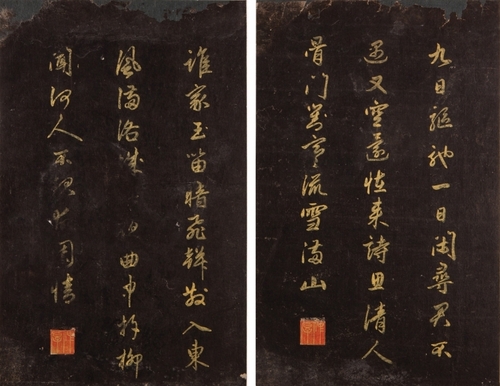 九日驅馳一日閑尋君不
遇又空還怪來詩思清人
骨門對寒流雪滿山
誰家玉笛暗飛聲散入東
風滿洛城 曲中折柳
聞何人不起故園情